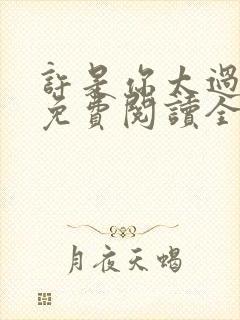 許是你太過
免費閱讀全
月夜天蝎